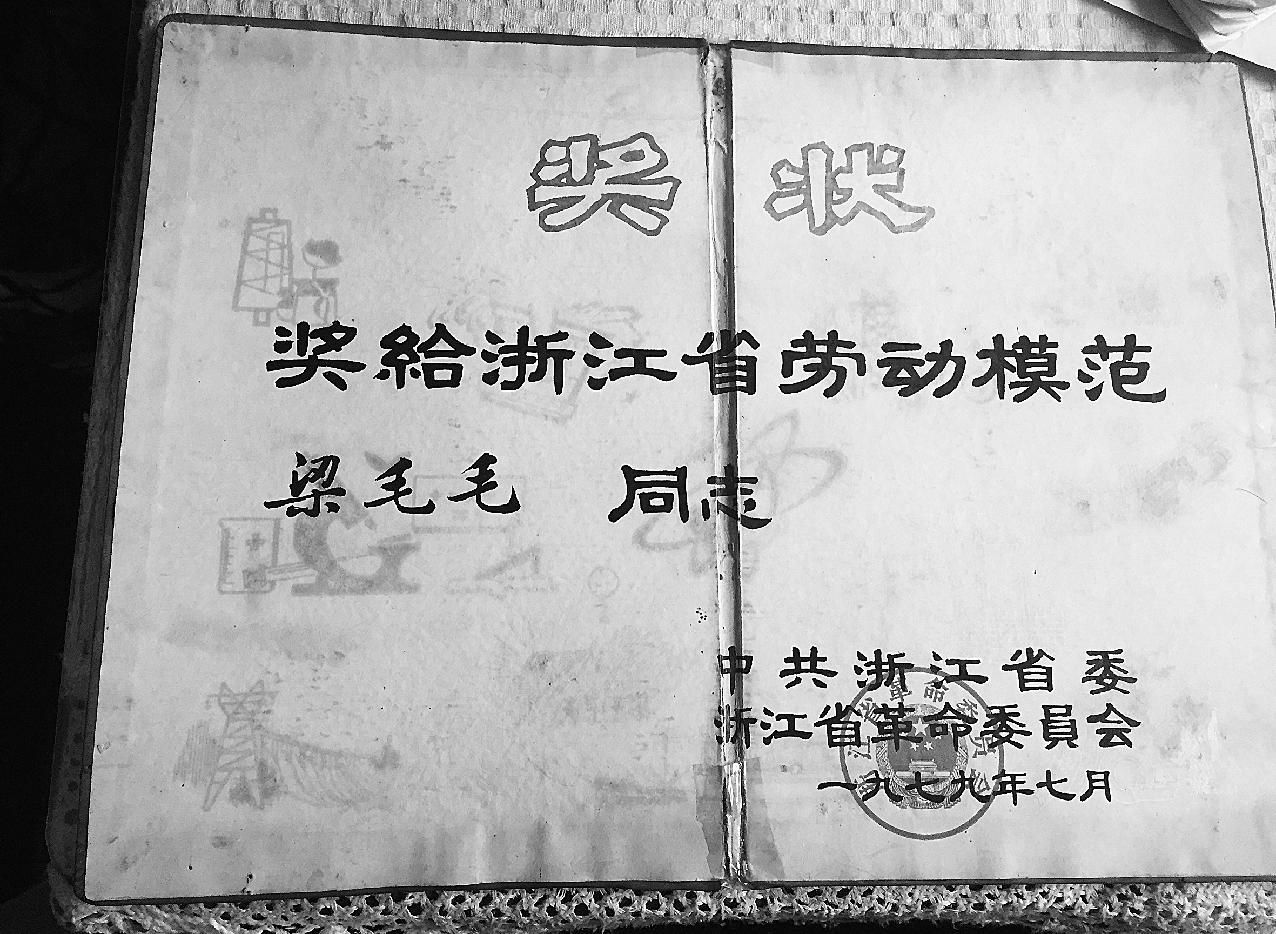 奖状
奖給浙江省劳动模范
梁毛毛 同志
中共浙江省委
浙江省革命委員会
一九七九年七月